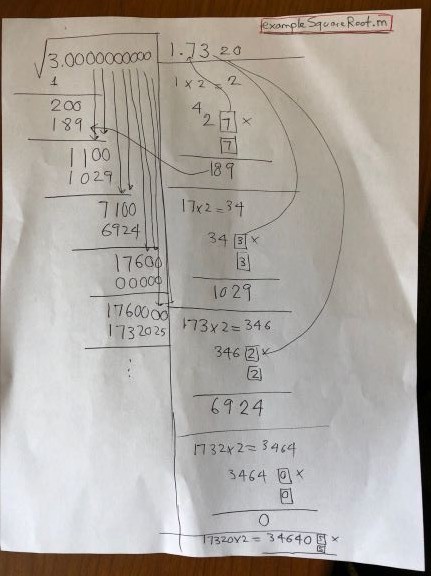 exampleSquareRoot.m
√3.0000000000
1
200
189
1100
1029
7100
6924
17600
00000
1760000
1732025
⋮
1.7320
1 × 2 = 2
4
2 7 ×
7
189
17×2=34
34 3 ×
3
1029
173×2=346
346 2 ×
2
6924
1732×2=3464
3464 0 ×
0
0
17320×2= 34640 5 ×
5